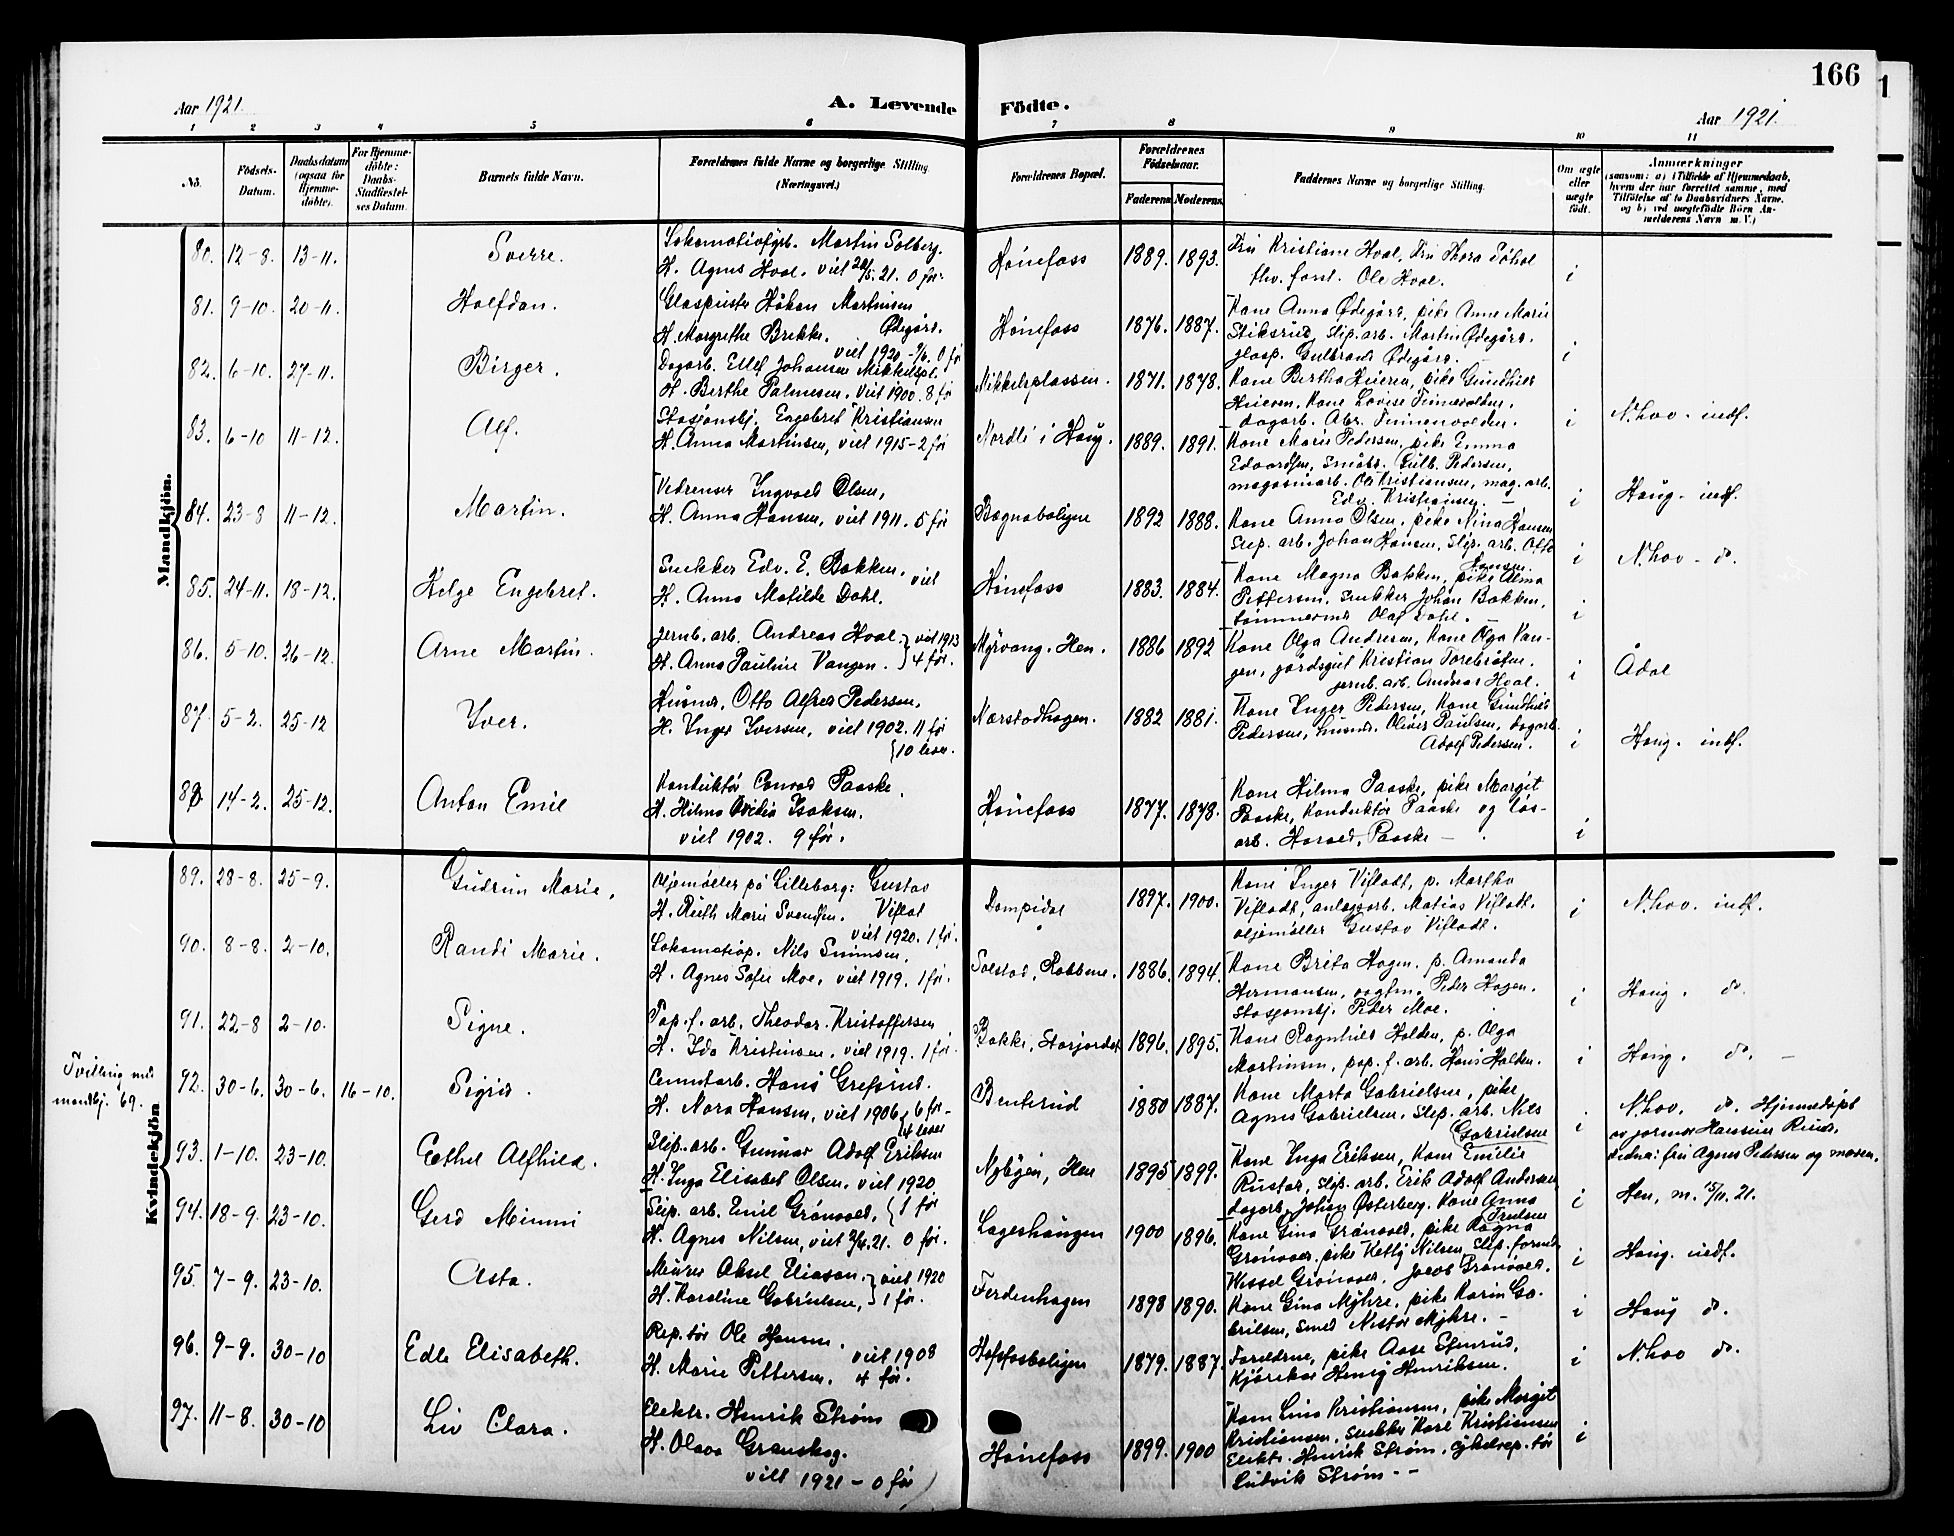 166
Aar 1921.
A. Levende Födte.
Aar 1921.
1 2 3 4 5 6 7 8 9 10 11
No.
Födsels-Datum.
Daabsdatum (ogsaa for Hjemme-döbte).
For Hjemme-döbte: Daabs-Stadfæstel-ses Datum.
Barnets fulde Navn.
Forældrenes fulde Navne og borgerlige Stilling (Næringsvei.)
Forældrenes Bopæl.
Forældrenes Födselsaar.
Faderens Moderens.
Faddernes Navne og borgerlige Stilling.
Om ægte eller uægte födt.
Anmærkninger
(saasom: a) i Tilfælde af Hjemmedaab, hvem der har forrettet samme, med Tilföielse af to Daabsvidners Navne, og b) ved uægtefödte Börn An-melderens Navn m. V.)
Mandkjön.
80. 12-8. 13-11. Sverre.
Lokomotivfyrb. Martin Solberg.
H. Agnes Hval. viet 28/5.21. 0 før.
Hønefoss 1889. 1893.
Fru Kristiane Hval, Fru Thora
fhv. forst. Ole Hval. i
81. 9-10. 20-11. Halfdan.
Glaspuster Håkon Martinsen
Ødegård.
H. Margrethe Brekke.
viet 1920 0 før
Hønefoss 1876. 1887.
Kone Anna Ødegård, pike Anne Marie
Stiksrud, Slip. arb. Martin Ødegård.
glasp. Gulbrand Ødegård. i
82. 6-10. 27-11. Birger.
Dagarb. Ellef Johansen Mikkelspl.
H. Berthe Palmesen. viet 1900. 8 før
Mikkelsplassen. 1871. 1878.
Kone Bertha Heieren, pike Gundhild
Heieren, Kone Lovise Finnevolden,
dagarb. Abr. Finnevolden. i N.hov. indf.
83. 6-10 11-12. Alf.
Stasjonsbj. Engebret Kristiansen
H. Anna Martinsen, viet 1915-2 før
Nordli i Haug. 1889. 1891.
Kone Marie Pedersen, pike Emma
Edvardsen, småbr. Gulb. Pedersen,
magasinarb. Ole Kristiansen, mag. arb.
Edv. Kristiansen. i Haug. indf.
84. 23-8 11-12. Martin.
Vedrenser Ingvald Olsen,
H. Anna Hansen, viet 1911. 5 før
Bægnaboligne 1892 1888.
Kone Anna Olsen, pike Nina Hansen
Slip. arb. Johan Hansen, Slip. arb. Otto
Hansen. i N.hov - do.
85. 24-11. 18-12. Helge Engebret.
Snekker Edv. E. Bakken. viet
H. Anna Matilde Dahl.
Hønefoss 1883. 1884.
Kone Magna Bakken, pike Alma
Pettersen, Snekker Johan Bakken,
tømmermd. Olaf Dahl. i
86. 5-10. 26-12. Arne Martin.
Jernb. arb. Andreas Hval. } viet 1913
H. Anna Pauline Vangen. } 4 før.
Myrvang, Hen. 1886 1892
Kone Olga Andresen, Kone Olga Van-
gen, gårdsgut Kristian
jernb. arb. Andreas Hval. i Ådal
87. 5-2. 25-12 Iver.
Husmd. Otto Alfred Pedersen,
H. Inger Iversen, viet 1902. 11 før
{10 lever.
Nærstadhagen. 1882 1881.
Kone Inger Pedersen, Kone Gundhild
Pedersen, husmd. Oliver Paulsen, dagarb.
Adolf Pedersen. i Haug. indf.
88. 14-2. 25-12. Anton Emil
Konduktør Conrad Paaske.
H. Hilma Isaksen.
viet 1902. 9 før.
Hønefoss 1877. 1878.
Kone Hilma Paaske, pike Margit
Paaske, Konduktør Paaske og løs-
arb. Harald Paaske - i
Kvindekjön
89. 28-8. 25-9. Gudrun Marie.
Oljemøller på Lilleborg: Gustav
H. Ruth Marie Svendsen. Viflat
viet 1920. 1 før.
Dompidal 1897. 1900.
Kone Inger Vifladt, p. Martha
Vifladt, anlægsarb. Matias Vifladt.
oljemøller Gustav Vifladt. i N.hov. indf.
90. 8-8. 2-10. Randi Marie.
Lokomotivp. Nils Simensen,
H. Agnes Sofie Moe, viet 1919. 1 før.
Solstad, Robbene. 1886. 1894.
Kone Brita Hagen. p. Amanda
Hermansen, vogtm. Peder Hagen.
Stasjonsbj. Peder Moe. i Haug. do.
91. 22-8 2-10. Signe.
Pap. f. arb. Theodor Kristoffersen
H. Ida Kristinsen, viet 1919. 1 før.
Bakke, Storjordet 1896. 1895.
Kone Ragnhild Holden, p. Olga
Martinsen, pap. f. arb. Hans Holden. i Haug. do. -
Tvilling med
mandkj. 69.
92. 30-6. 30-6. 16-10. Sigrid.
Cementarb. Hans Grefsrud.
H. Nora Hansen, viet 1906 {6 før-
{4 lever
Benterud 1880 1887.
Kone Marta Gabrielsen, pike
Agnes Gabrielsen, Slip. arb. Nils
Gabrielsen i N.hov. do. Hjemmedøpt
av jormor Hansine Ruud.
vidne: fru Agnes Pedersen og moren.
93. 1-10. 23-10. Ethel Alfhild.
Slip. arb. Gunnar Adolf Eriksen
H. Inga Elisabet Olsen. viet 1920
1 før
Nybyen, Hen 1895 1899.
Kone Inga Eriksen, Kone Emilie
Rustad, slip. arb. Erik Adolf Andersen
dagarb. Johan Østerberg, Kone Anna
Trulsen i Hen, m. 15/11.21.
94. 18-9. 23-10. Gerd Mimmi
Slip. arb. Emil Grønvold,
H. Agnes Nilsen, viet 2/4.21. 0 før.
Lageshaugen 1900 1896.
Kone Gina Grønvold, pike Ragna
Grønvold, pike Ketty Nilsen, Slip. formd.
Wessel Grønvold, Jacob Grønvold. i Haug. indf.
95. 7-9. 23-10. Asta.
Murer Aksel Eliason. } viet 1920
H. Karoline Gabrielsen, } 1 før.
Ferdenhagen 1898 1890.
Kone Gina Myhre, pike Karin Ga-
brilsen, smed Nestor Myhre. - i Haug do.
96. 9-9. 30-10 Edle Elisabeth.
Rep.tør Ole Hansen.
H. Marie Pettersen. viet 1908
4 før.
Hoffsfosboligen 1879. 1887.
Foreldrene, pike Aase Stenrud,
Kjørekar Henry Henriksen. i N.hov do.
97. 11-8. 30-10 Liv Clara.
Elektr. Henrik Strøm
H. Olava Granskog.
viet 1921 - 0 før
Hønefoss 1899. 1900
Kone Lina Kristiansen, pike Margit
Kristiansen, snekker Kare Kristiansen
Elektr. Henrik Strøm. cykelrep.tør
Ludvik Strøm - - i